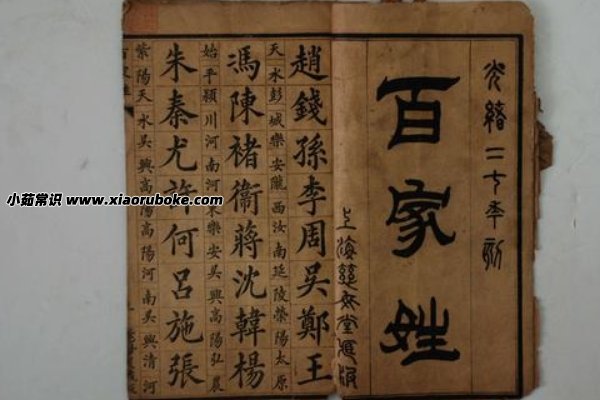 光緒二七年刻
百家姓
上海堂
趙錢孫李周吳鄭王
天水彭城樂安隴西汝南延陵滎陽太原
馮陳褚衛蔣沈韓楊
始平潁川河南河東樂安吳興高陽弘農
朱秦尤許何呂施張
紫陽天水吳興高陽高陽河南吳興清河
小茹常识 www.xiaoruboke.com